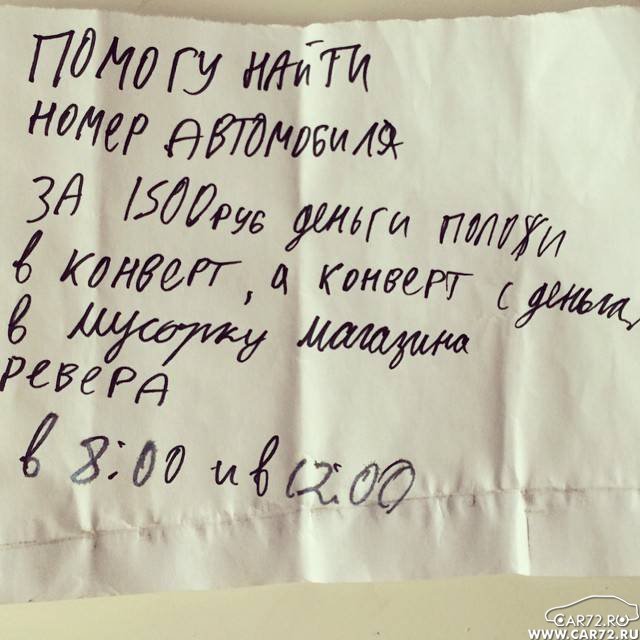 ПОМОГУ НАЙТИ
НОМЕР АВТОМОБИЛЯ
ЗА 1500РУБ деньги положи
в конверт, а конверт с деньга
в мусорку магазина
РЕВЕРА
в 8:00 и в 12:00
CAR72.RU
WWW.CAR72.RU